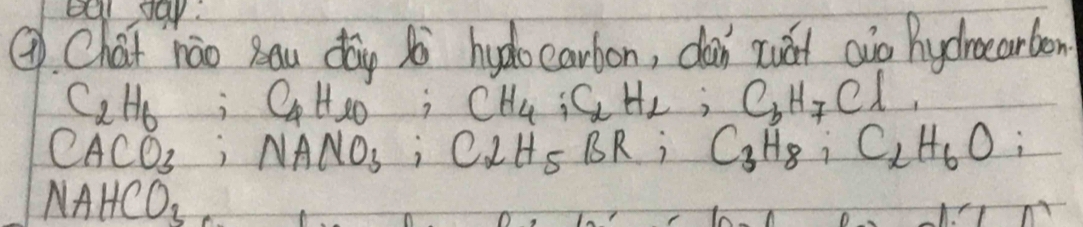 Bài tập:
① Chất nào sau đây là hydocarbon, dẫn xuất của hydrocarbon.
C₂H₆ ; C₄H₁₀ ; CH₄ ; C₂H₂ ; C₃H₇Cl.
CACO₃ ; NANO₃ ; C2H₅BR ; C₃H₈ ; C₂H₆O ;
NAHCO₃